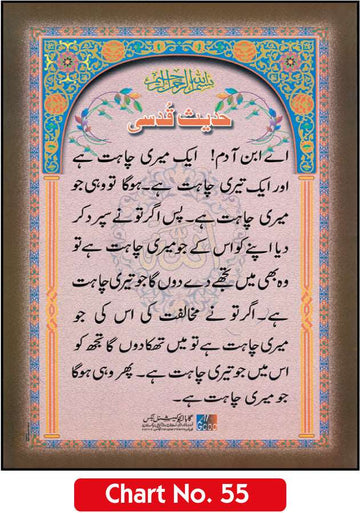 بسم الله الرحمن الرحيم
حدیث قدسی
اے ابن آدم! ایک میری چاہت ہے
اور ایک تیری چاہت ہے۔ ہوگا تو وہی جو
میری چاہت ہے۔ پس اگر تو نے سپرد کر
دیا اپنے کو اس کے جو میری چاہت ہے تو
وہ بھی میں تجھے دے دوں گا جو تیری چاہت
ہے۔ اگر تو نے مخالفت کی اس کی جو
میری چاہت ہے تو میں تھکا دوں گا تجھ کو
اس میں جو تیری چاہت ہے۔ پھر وہی ہوگا
جو میری چاہت ہے۔
Chart No. 55